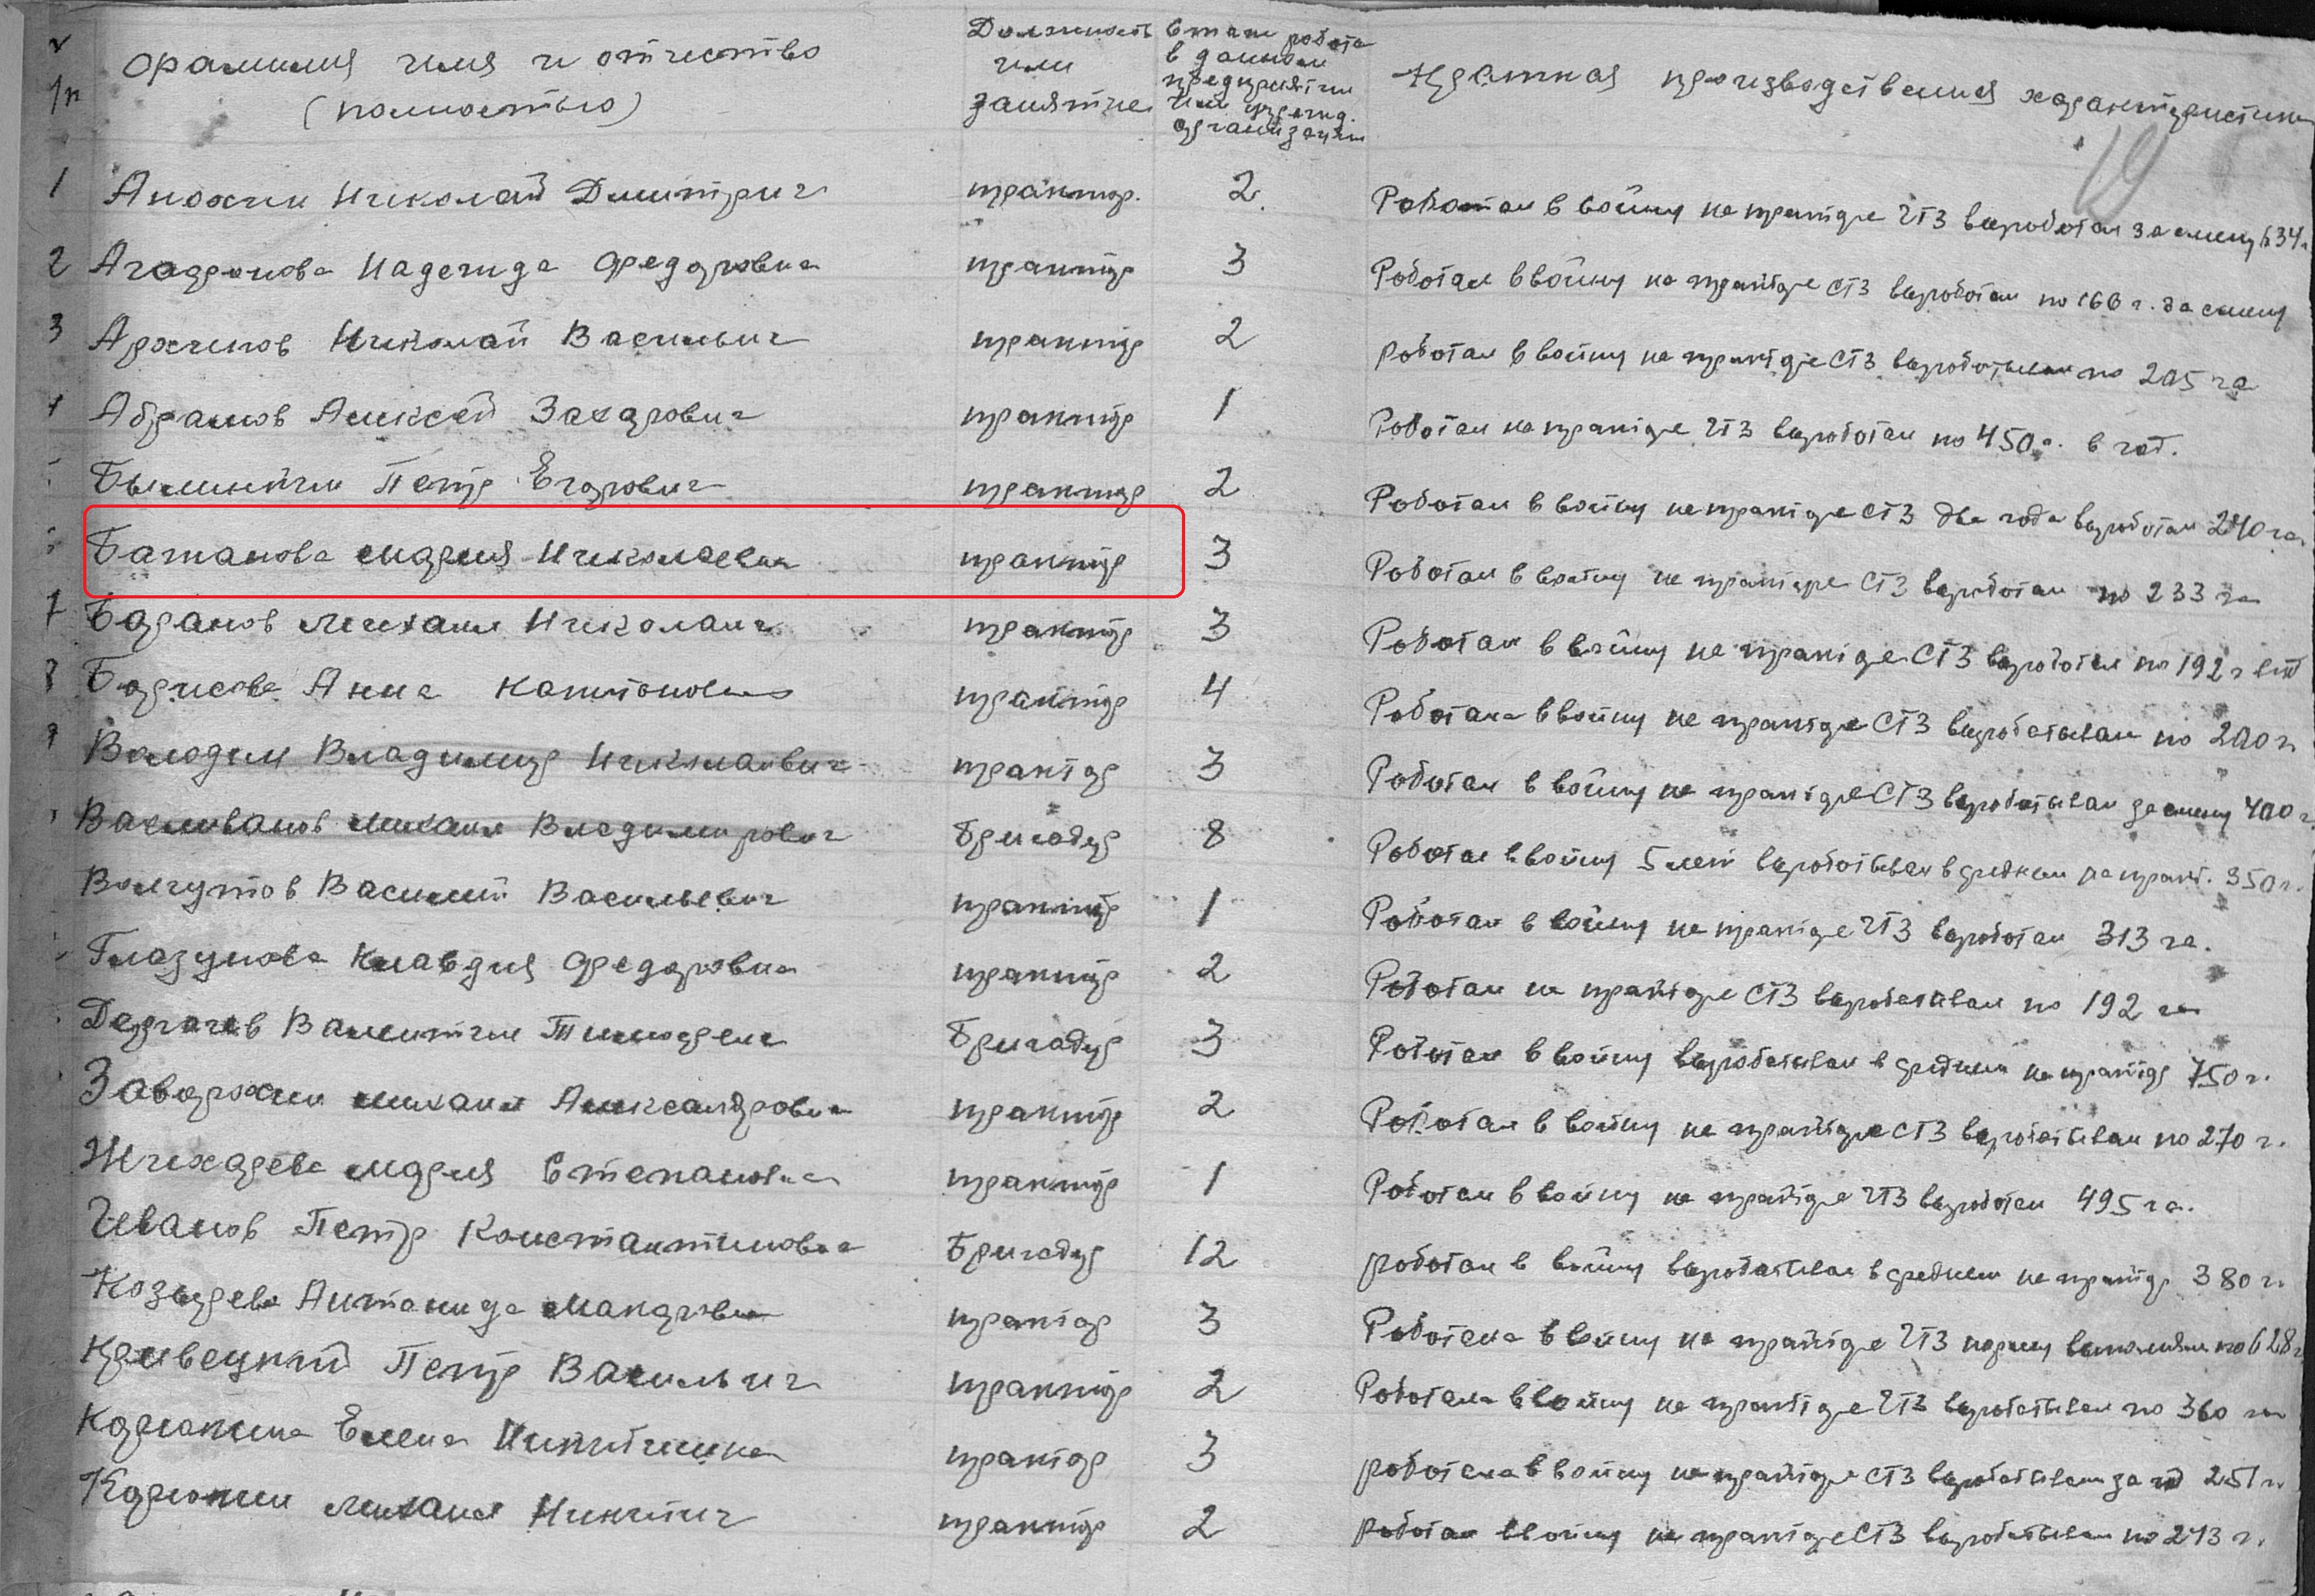 Фамилия имя и отчество
(полностью)
Должность
или
занятие
Стаж работы
в данном
предприятии
или учрежд.
организации
Краткая производственная характеристика
19
1 Анохин Николай Дмитрич трактор. 2. Работал в войну на тракторе ЧТЗ выработал за смену 634
2 Агафонова Надежда Федоровна трактор 3 Работал в войну на тракторе СТЗ выработал по 166 г. за смену
3 Архипов Николай Василич трактор 2 работал в войну на тракторе СТЗ вырабатывал по 205 га
4 Абрамов Алексей Захарович трактор 1 Работал на тракторе ЧТЗ выработал по 450 г. в год.
Петр Егорович трактор 2 Работал в войну на тракторе СТЗ два года выработал 240 га.
Батанова Мария Николаевна трактор 3 Работал в войну на тракторе СТЗ выработал по 233 га
7 Баранов Михаил Николаич трактор 3 Работал в войну на тракторе СТЗ выработал по 192 г
8 Борисова Анна Капитоновна трактор 4 Работала в войну на тракторе СТЗ вырабатывал по 200 г.
9 Володин Владимир Николаевич трактор 3 Работал в войну на тракторе СТЗ вырабатывал за смену 400 г.
Михаил Владимирович Бригадир 8 Работал в войну 5 лет вырабатывал в среднем на тракт. 350 г.
Волгутов Василий Васильевич трактор 1 Работал в войну на тракторе ЧТЗ выработал 313 га.
Глазунова Клавдия Федоровна трактор 2 Работал на тракторе СТЗ вырабатывал по 192 га
Дергачев Валентин Тимофеич Бригадир 3 Работал в войну вырабатывал в среднем на трактор 750 г.
Заворохин Михаил Александрович трактор 2 Работал в войну на тракторе СТЗ вырабатывал по 270 г.
Жихарева Мария Степановна трактор 1 Работал в войну на тракторе ЧТЗ выработал 495 га.
Иванов Петр Константинович Бригадир 12 работал в войну вырабатывал в среднем на трактор 380 г.
Козырева Антонида Макаровна трактор 3 Работала в войну на тракторе ЧТЗ норму выполняла по 628 г
Кривецкий Петр Василич трактор 2 Работала в войну на тракторе ЧТЗ вырабатывал по 360 га
Корюкина Елена Никитична трактор 3 работала в войну на тракторе СТЗ вырабатывал за год 251 г.
Корюкин Михаил Никитич трактор 2 работал в войну на тракторе СТЗ вырабатывал по 213 г.